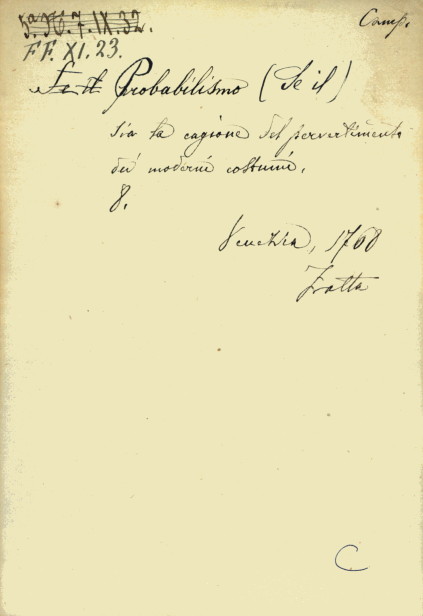 5ª H. 7. IX. 32.
Camp.
FF. XI. 23.
Se il Probabilismo (Se il)
sia la cagione del pervertimento
dei moderni costumi.
8.
Venezia, 1760
Zatta
C